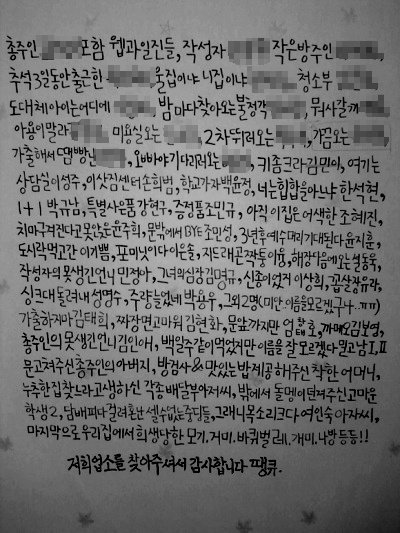 총주인 포함 웹과일진들, 작성자 작은방주인
추석3일동안출근한 울집이냐 니집이냐 청소부
도대체아이는어디에 밤마다찾아오는불청객 뭐사갈까
아용이말라 미용실오는 2차뛰러오는 가끔오는
가출해서 오빠야기다리러오는 키좀크라김민이, 여기는
상담실이성주, 이삿짐센터손희범, 학교가자백윤정, 너는힙합을아느냐 한석현,
1+1 박규남, 특별사은품강현구, 증정품조민규, 아직 이집은 어색한 조혜진,
치마구겨진다고못앉는윤주희, 문밖에서 BYE조민성, 3년후예수머리기대된다윤지훈,
도시락먹고간 이기쁨, 포미닛이다이은솔, 지드래곤짝퉁이용, 해장다음에오는설동욱,
작성자의못생긴언니민정아, 그녀의심장김명규, 신종이었거이상희, 깝살장유라,
싱크대돌려내성명수, 주량늘었네박용우, 그외2명(미안.이름을모르겠구ㅓ.ㅠㅠ)
가출하지마김태희, 짜장면고마워김현화, 문앞까지만 호, 까매오김보영,
총주인의못생긴언니김인애, 백일주같이먹었지만이름을잘모르겠다밀고남Ⅰ,Ⅱ
문고쳐주신총주인의아버지, 방검사&맛있는밥제공해주신 착한 어머니,
누추한집찾느라고생하신 각종배달부아저씨, 밖에서 돌멩이던져주신고마운
학생2, 담배피다걸려혼난 셀수없는중딩들, 그래니목소리크다여인숙아자씨,
마지막으로우리집에서희생당한모기.거미.바퀴벌레.개미.나방등등!!
저희업소를찾아주셔서 감사합니다 땡큐.